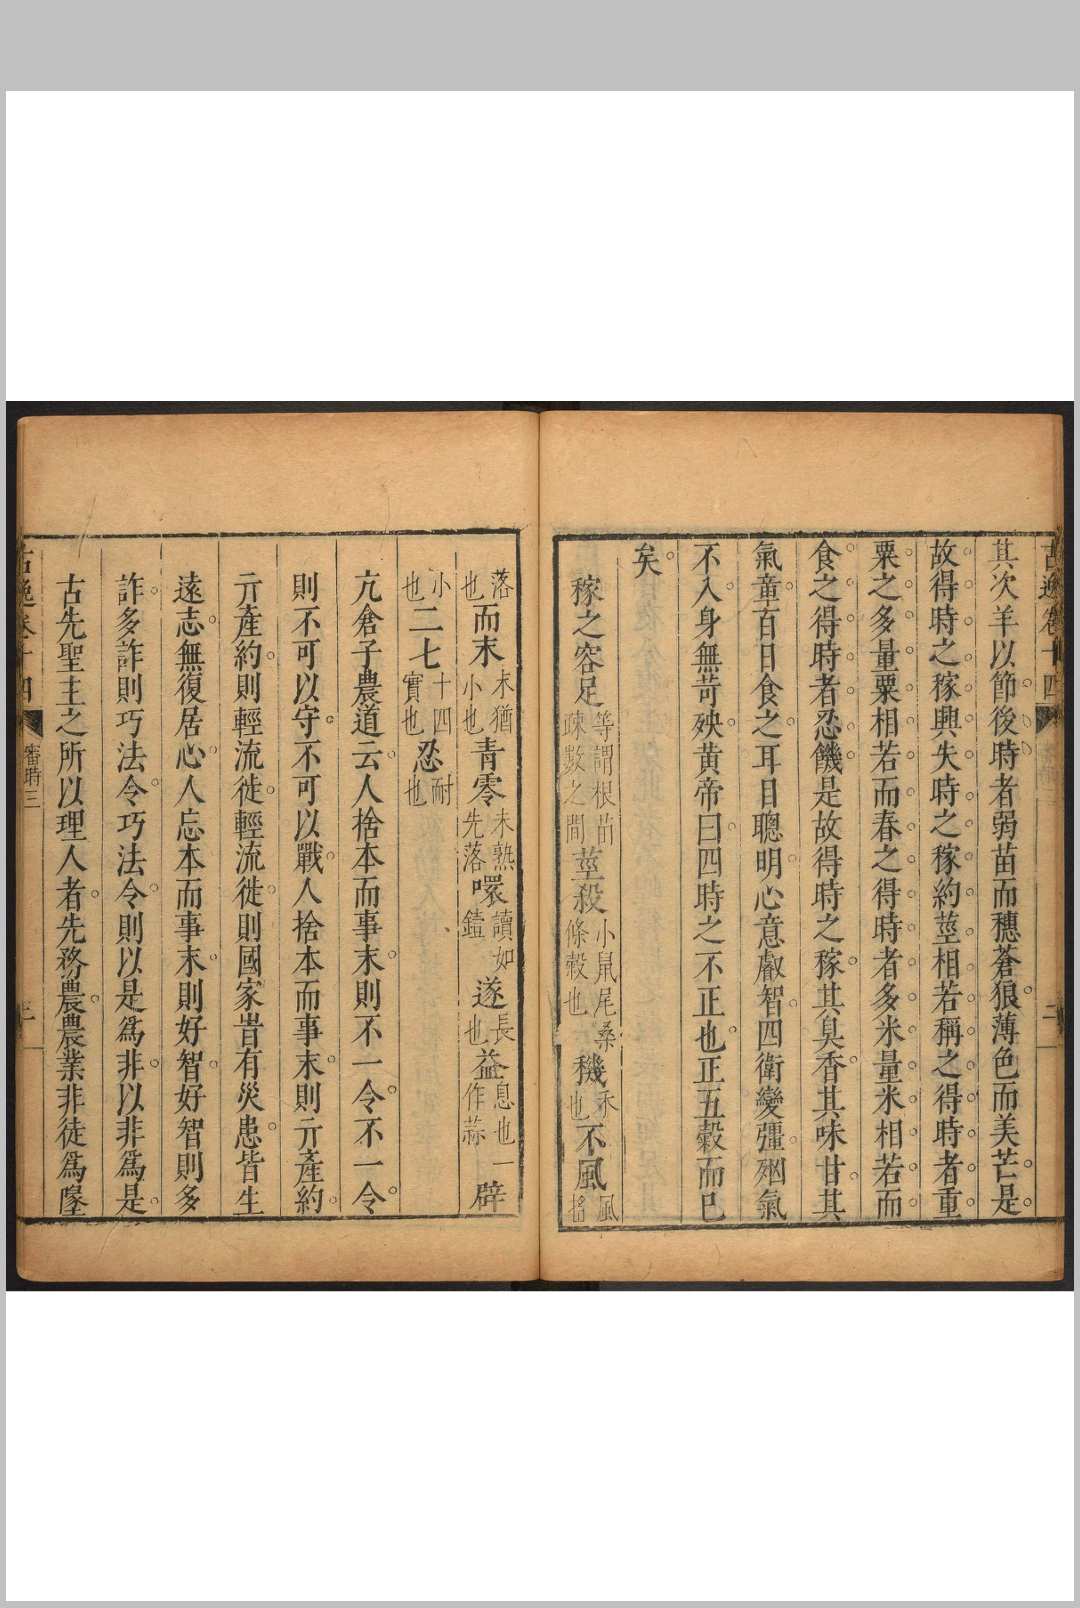 古逸卷十四
二
其次羊以節後時者弱苗而穗蒼狼薄色而美芒是
故得時之稼興失時之稼約莖相若稱之得時者重
粟之多量粟相若而春之得時者多米量米相若而
食之得時者忍饑是故得時之稼其臭香其味甘其
氣章百日食之耳目聰明心意叡智四衛變彊殃氣
不入身無苛殃黃帝曰四時之不正也正五穀而已
矣
稼之容足等謂根苗疎數之間莖殺小鼠尾桑條穀也穖禾也不風風搖
落也而末末猶小也青零未熟先落喂讀如饐遂長也益息也作蒜一辟
小也二七十四實也忍耐也
亢倉子農道云人捨本而事末則不一令不一令
則不可以守不可以戰人捨本而事末則亓產約
亓產約則輕流徙輕流徙則國家旹有災患皆生
遠志無復居心人忘本而事末則好智好智則多
詐多詐則巧法令巧法令則以是爲非以非爲是
古先聖主之所以理人者先務農農業非徒爲墬
古逸卷十四
審時三
三